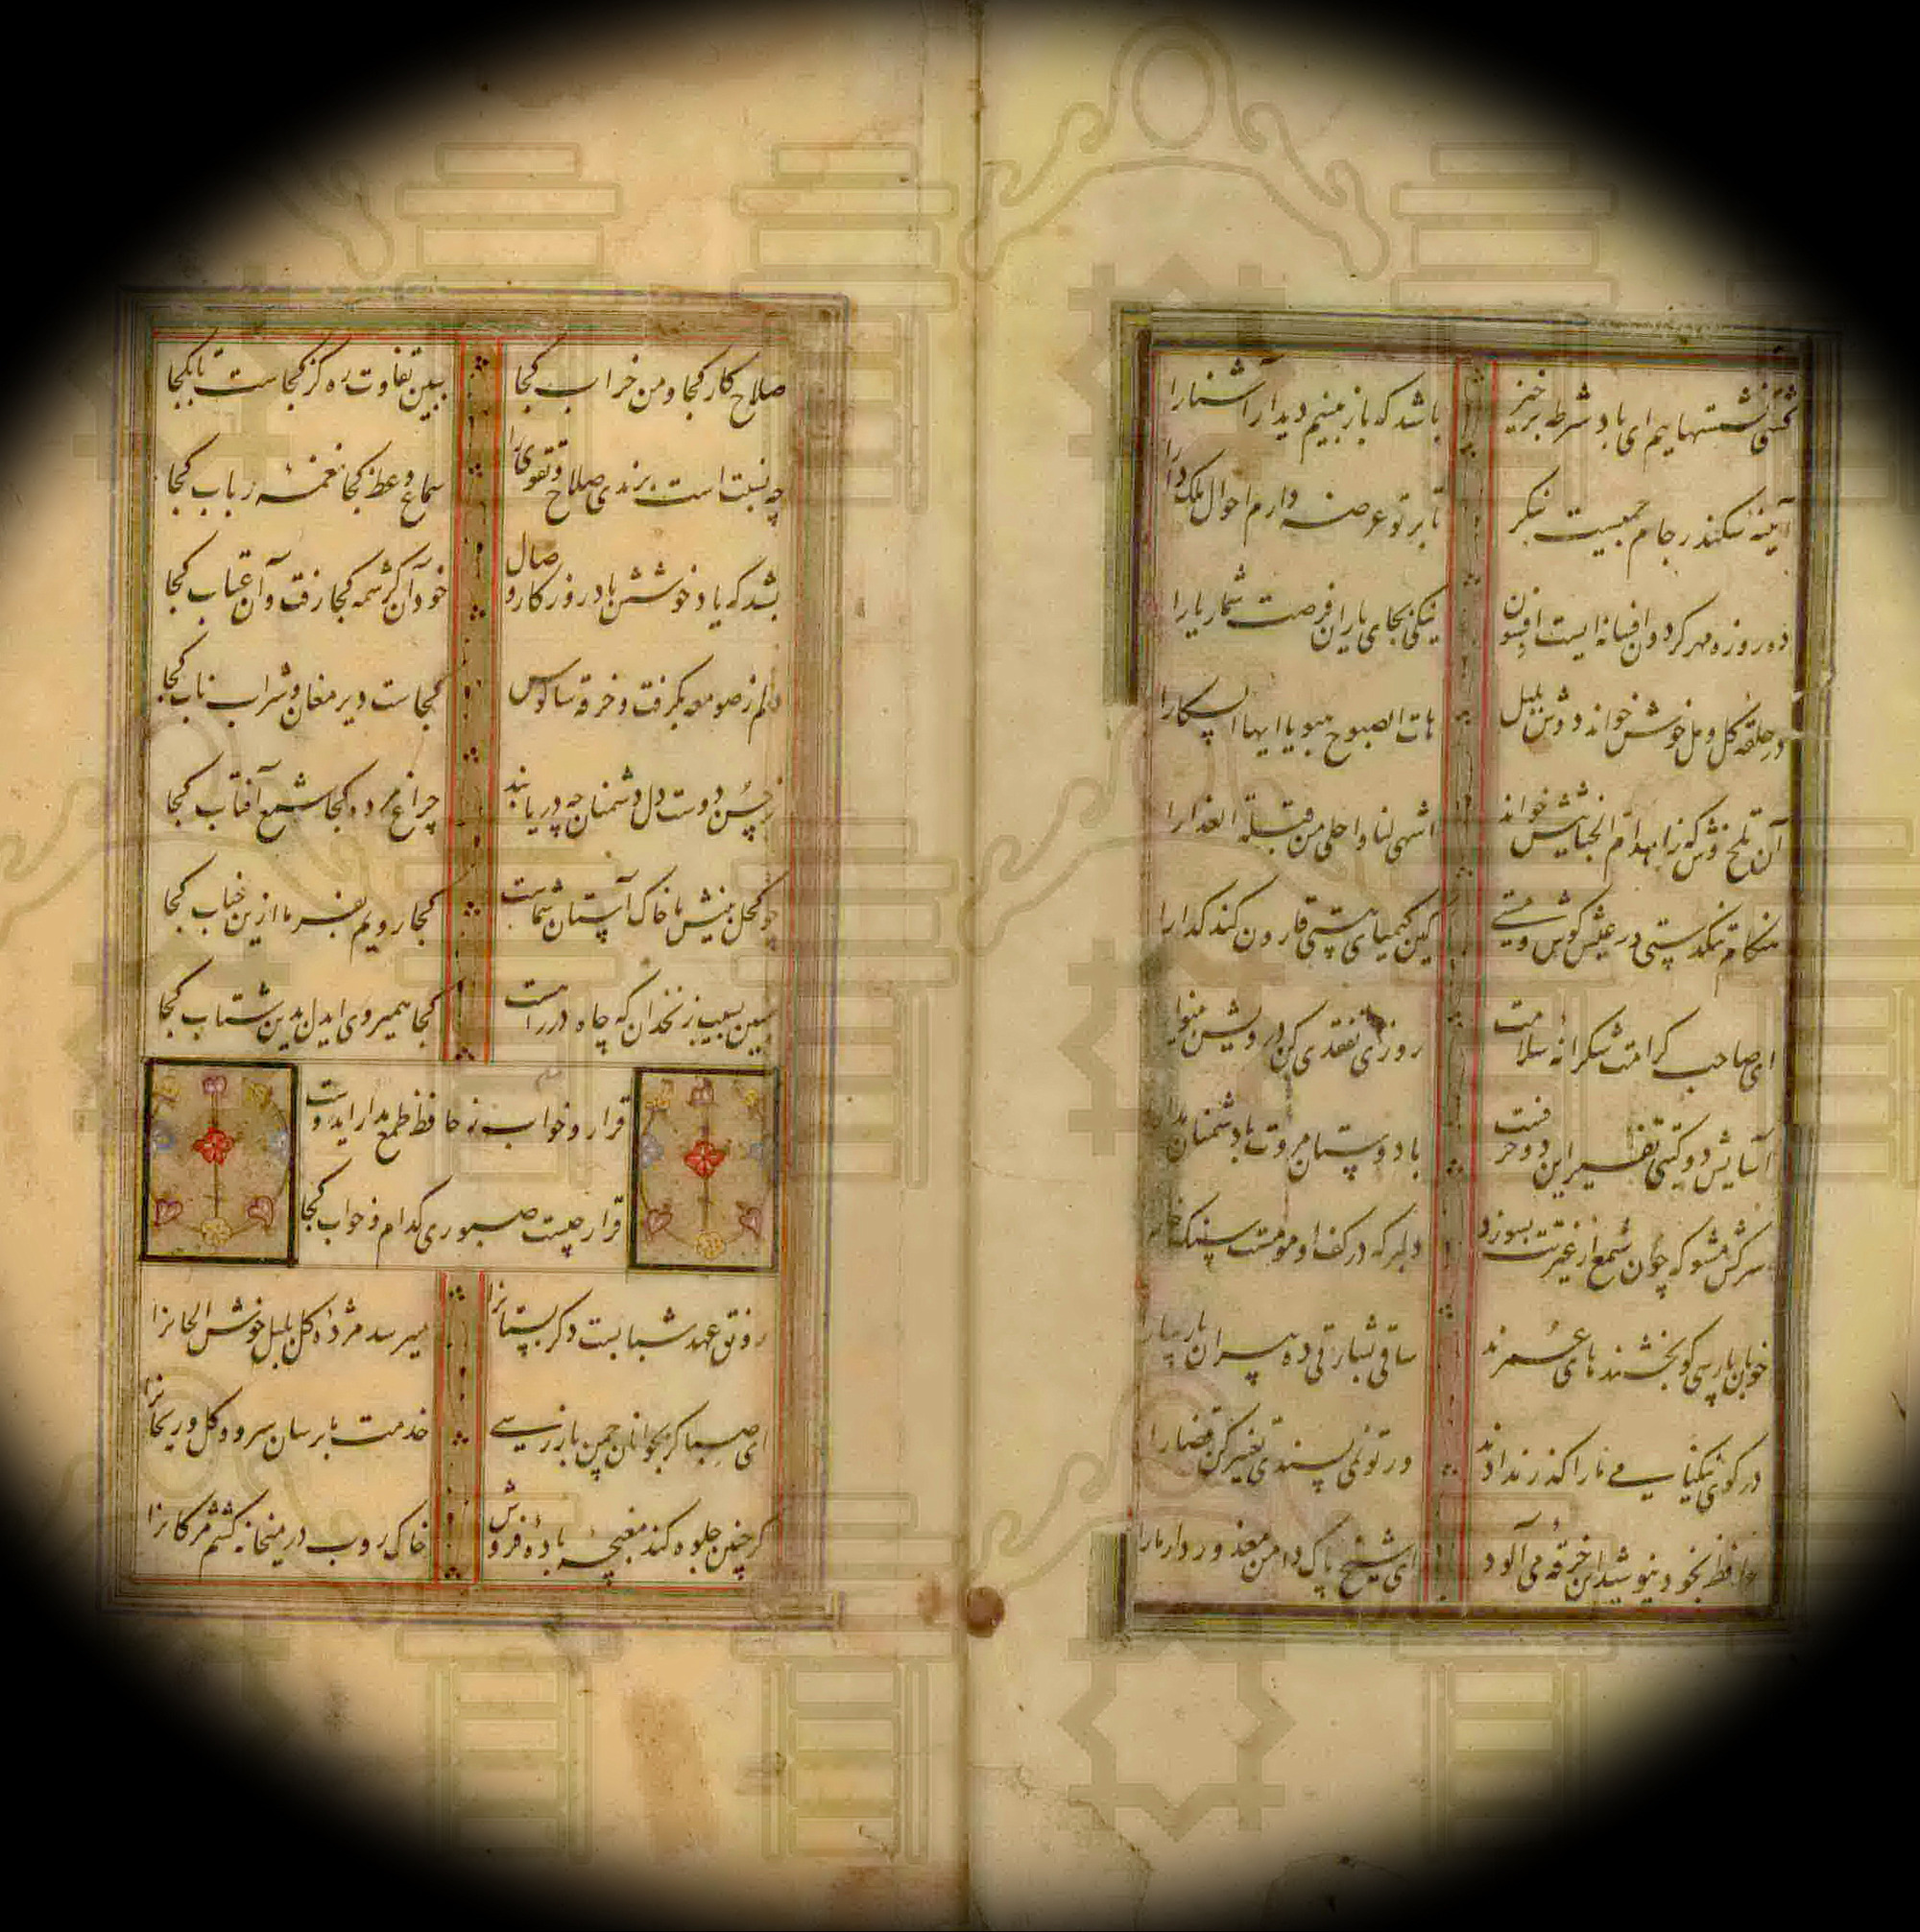 کشتی نشستهاییم ای باد شرطه برخیز باشد که باز بینیم دیدار آشنا را
آیینه سکندر جام جمست بنگر تا بر تو عرضه دارم احوال ملک دارا
ده روزه مهر کردون افسانه ایست افسون نیکی بجای یاران فرصت شمار یارا
در حلقه کل و مل خوش خواند دوش بلبل هات الصبوح هبوا یا ایها السکارا
آن تلخوش که زاهد ام الخبایثش خواند اشهی لنا و احلی من قبلة العذارا
هنکام تنکدستی در عیش کوش و مستی کین کیمیای هستی قارون کند کدا را
ای صاحب کرامت شکرانه سلامت روزی تفقدی کن درویش بینوا
آسایش دو کیتی تفسیر این دو حرفست با دوستان مروت با دشمنان مدارا
سرکش مشو که چون شمع از غیرتت بسوزد دلبر که در کف او مومست سنک خارا
خوبان پارسی کو بخشندهای عمرند ساقی بشارتی ده پیران پارسا را
در کوی نیکنامی ما را کذر ندادند ور تو نمی پسندی تغییر کن قضا را
حافظ بخود نپوشید این خرقه می آلود ای شیخ پاک دامن معذور دار ما را
صلاح کار کجا و من خراب کجا ببین تفاوت ره کز کجاست تا بکجا
چه نسبت است برندی صلاح و تقوی را سماع وعظ کجا نغمه رباب کجا
بشد که یاد خوشش باد روزکار وصال خود آن کرشمه کجا رفت و آن عتاب کجا
دلم ز صومعه بکرفت و خرقه سالوس کجاست دیر مغان و شراب ناب کجا
ز حسن دوست دل دشمنان چه دریابند چراغ مرده کجا شمع آفتاب کجا
چو کحل بینش ما خاک آستان شماست کجا رویم بفرما ازین جناب کجا
مبین بسیب زنخدان که چاه در راهست کجا همیروی ایدل بدین شتاب کجا
قرار و خواب ز حافظ طمع مدار ایدوست
قرار چیست صبوری کدام و خواب کجا
رونق عهد شبابست دکر بستانرا میرسد مژده کل بلبل خوش الحانرا
ای صبا کر بجوانان چمن باز رسی خدمت ما برسان سرو و کل و ریحانرا
کر چنین جلوه کند مغبچه باده فروش خاک روب در میخانه کنم مژکانرا